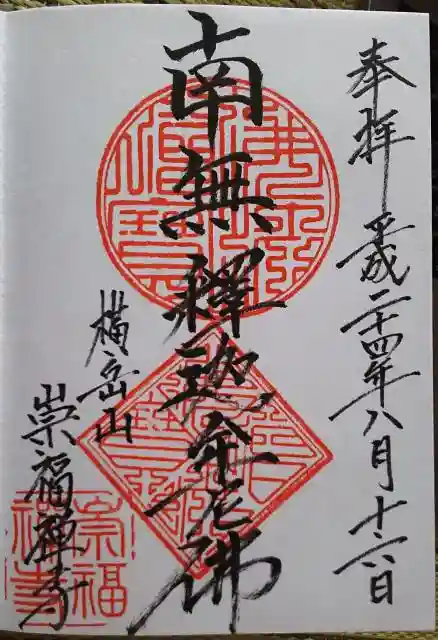 奉拝 平成二十四年八月十六日
南無釋迦牟尼佛
横岳山
崇福禅寺
崇福
禅寺